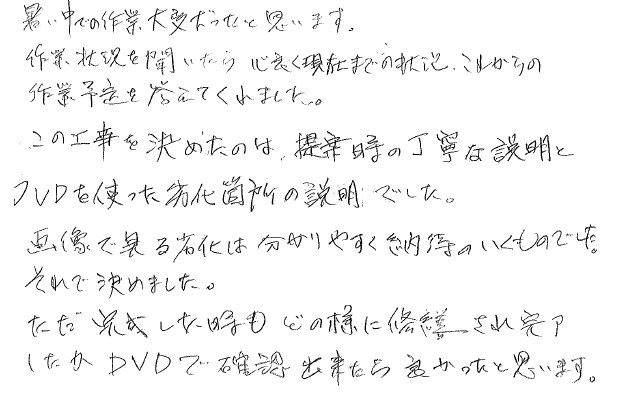 暑い中での作業大変だったと思います。
作業状況を聞いたら心良く現在までの状況、これからの
作業予定を答えてくれました。
この工事を決めたのは、提案時の丁寧な説明と
DVDを使った劣化箇所の説明でした。
画像で見る劣化は分かりやすく納得のいくものでした。
それで決めました。
ただ完成した時もどの様に修繕され完了
したかDVDで確認出来たら良かったと思います。